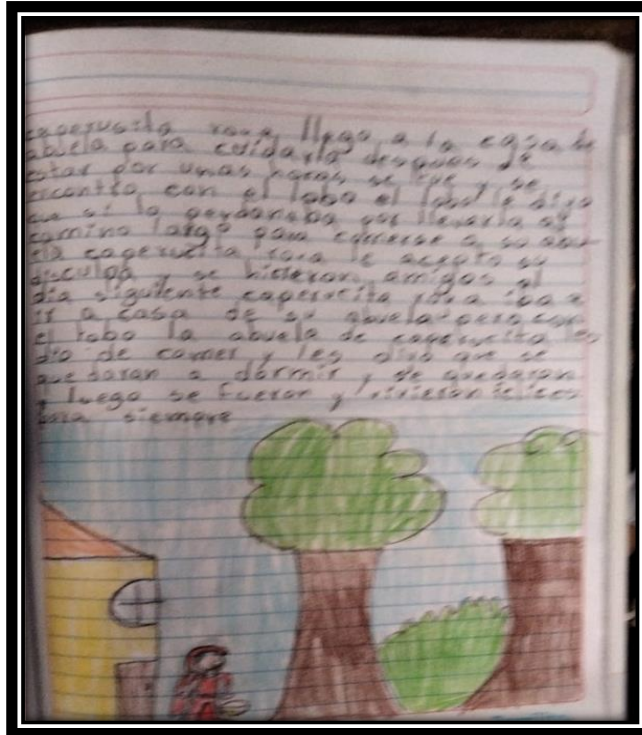 caperucita roja llego a la casa de
abuela para cuidarla despues de
estar por unas horas se fue y se
encontro con el lobo el lobo le dijo
que si lo perdonaba por llevarla al
camino largo para comerse a su abue
ela caperucita roja le acepto su
disculpa y se hicieron amigos al
dia siguiente caperucita roja iba a
ir a casa de su abuela pero con
el lobo la abuela de caperucita les
dio de comer y les dijo que se
quedaran a dormir y se quedaran
y luego se fueron y vivieron felices
para siempre